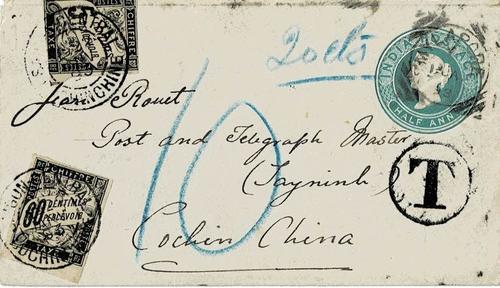 CHIFFRE
TAXE
20cts
INDIA POSTAGE
HALF ANNA
Jean Rouet
Post and Telegraph Master
(Tayninh)
Cochin China
10
T
CHIFFRE
60
CENTIMES
À
PERCEVOIR
TAXE